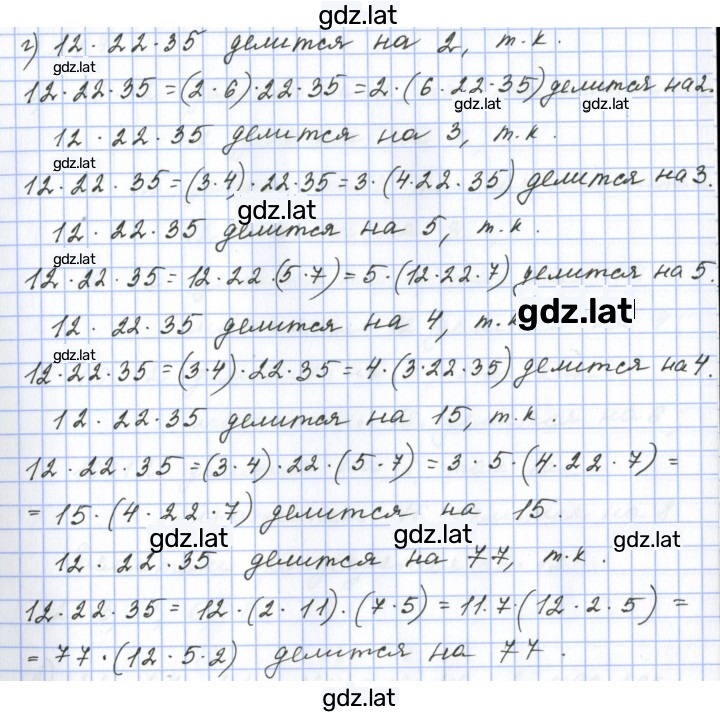 gdz.lat
г) 12 · 22 · 35 делится на 2, т.к.
gdz.lat
12 · 22 · 35 = (2 · 6) · 22 · 35 = 2 · (6 · 22 · 35) делится на 2.
gdz.lat gdz.lat
12 · 22 · 35 делится на 3, т.к.
gdz.lat
12 · 22 · 35 = (3 · 4) · 22 · 35 = 3 · (4 · 22 · 35) делится на 3.
gdz.lat
12 · 22 · 35 делится на 5, т.к.
gdz.lat
12 · 22 · 35 = 12 · 22 · (5 · 7) = 5 · (12 · 22 · 7) делится на 5.
gdz.lat
12 · 22 · 35 делится на 4, т.к
gdz.lat
12 · 22 · 35 = (3 · 4) · 22 · 35 = 4 · (3 · 22 · 35) делится на 4.
12 · 22 · 35 делится на 15, т.к.
12 · 22 · 35 = (3 · 4) · 22 · (5 · 7) = 3 · 5 · (4 · 22 · 7) =
= 15 · (4 · 22 · 7) делится на 15.
gdz.lat gdz.lat gdz.lat
12 · 22 · 35 делится на 77, т.к.
12 · 22 · 35 = 12 · (2 · 11) · (7 · 5) = 11 · 7 · (12 · 2 · 5) =
= 77 · (12 · 5 · 2) делится на 77.
gdz.lat